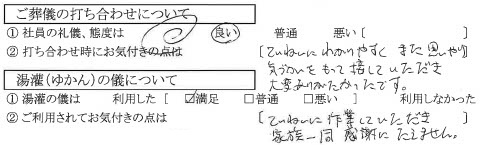 ご葬儀の打ち合わせについて
① 社員の礼儀、態度は 良い 普通 悪い [
② 打ち合わせ時にお気付きの点は [ていねいにわかりやすく また思いやり
気づかいをもって接していただき
大変ありがたかったです。
湯灌(ゆかん)の儀について
① 湯灌の儀は 利用した [ ☑満足 □普通 □悪い ] 利用しなかった
② ご利用されてお気付きの点は [ていねいに作業していただき
家族一同感謝にたえません。